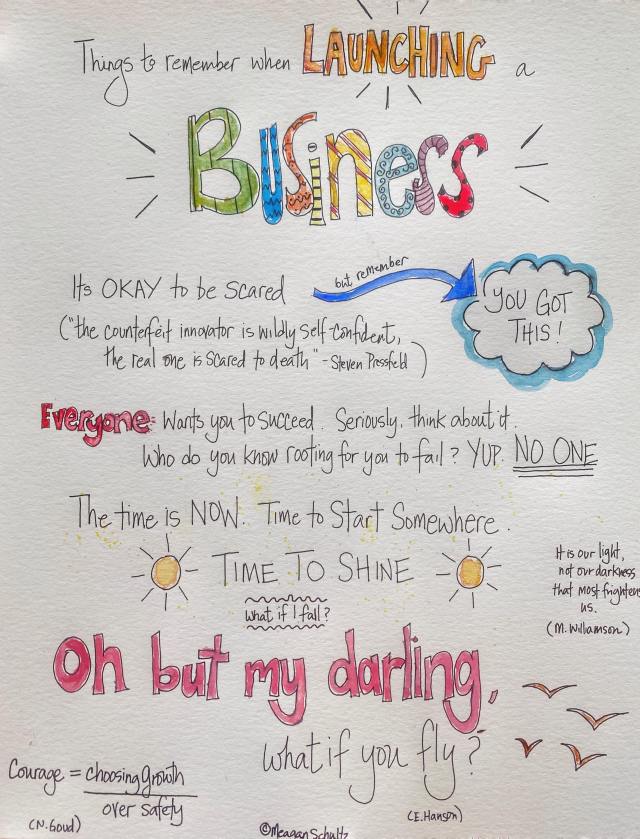 Things to remember when LAUNCHING a
Business
Its OKAY to be scared
but remember
YOU GOT
THIS!
("the counterfeit innovator is wildly self-confident,
the real one is scared to death" - Steven Pressfeld)
Everyone: Wants you to succeed. Seriously, think about it.
Who do you know rooting for you to fail? YUP. NO ONE
The time is NOW. Time to Start Somewhere.
TIME TO SHINE
It is our light,
not our darkness
that most frightens
us.
(M. Williamson)
what if I fall?
Oh but my darling,
what if you fly?
(E. Hanson)
Courage = choosing growth
over safety
(N. Goud)
©Meagan Schultz